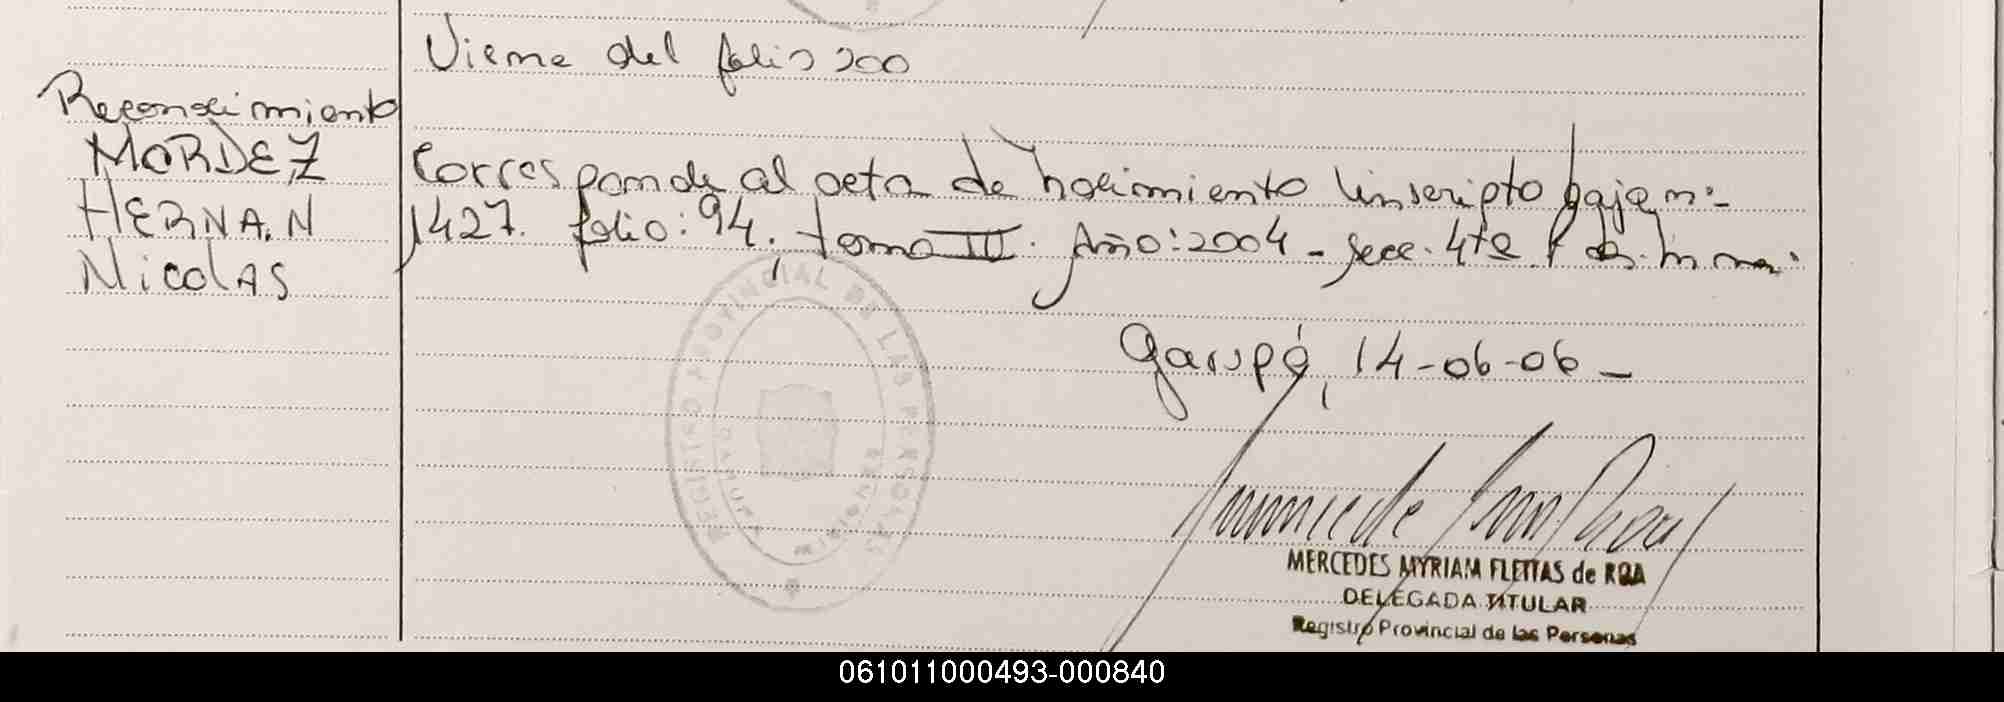 Viene del folio 200
Reconocimiento
MORDEZ
HERNAN
Nicolas
Corresponde al acta de nacimiento inscripto bajo n:-
1427. folio: 94, tomo III. Año: 2004 - secc. 4ta
Garupá, 14-06-06 -
REGISTRO PROVINCIAL DE LAS PERSONAS
MISIONES
MERCEDES MYRIAM FLEITAS de ROA
DELEGADA TITULAR
Registro Provincial de las Personas
061011000493-000840